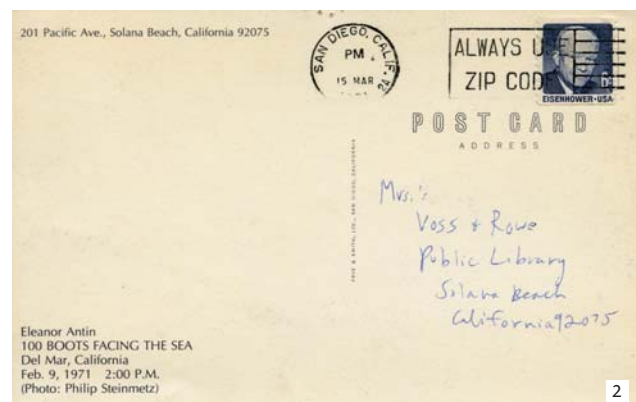 201 Pacific Ave., Solana Beach, California 92075
SAN DIEGO, CALIF.
PM
15 MAR
ALWAYS USE
ZIP CODE
EISENHOWER·USA
POST CARD
ADDRESS
Mrs.:
Voss + Rowe
Public Library
Solana Beach
California 92075
Eleanor Antin
100 BOOTS FACING THE SEA
Del Mar, California
Feb. 9, 1971 2:00 P.M.
(Photo: Philip Steinmetz)
2